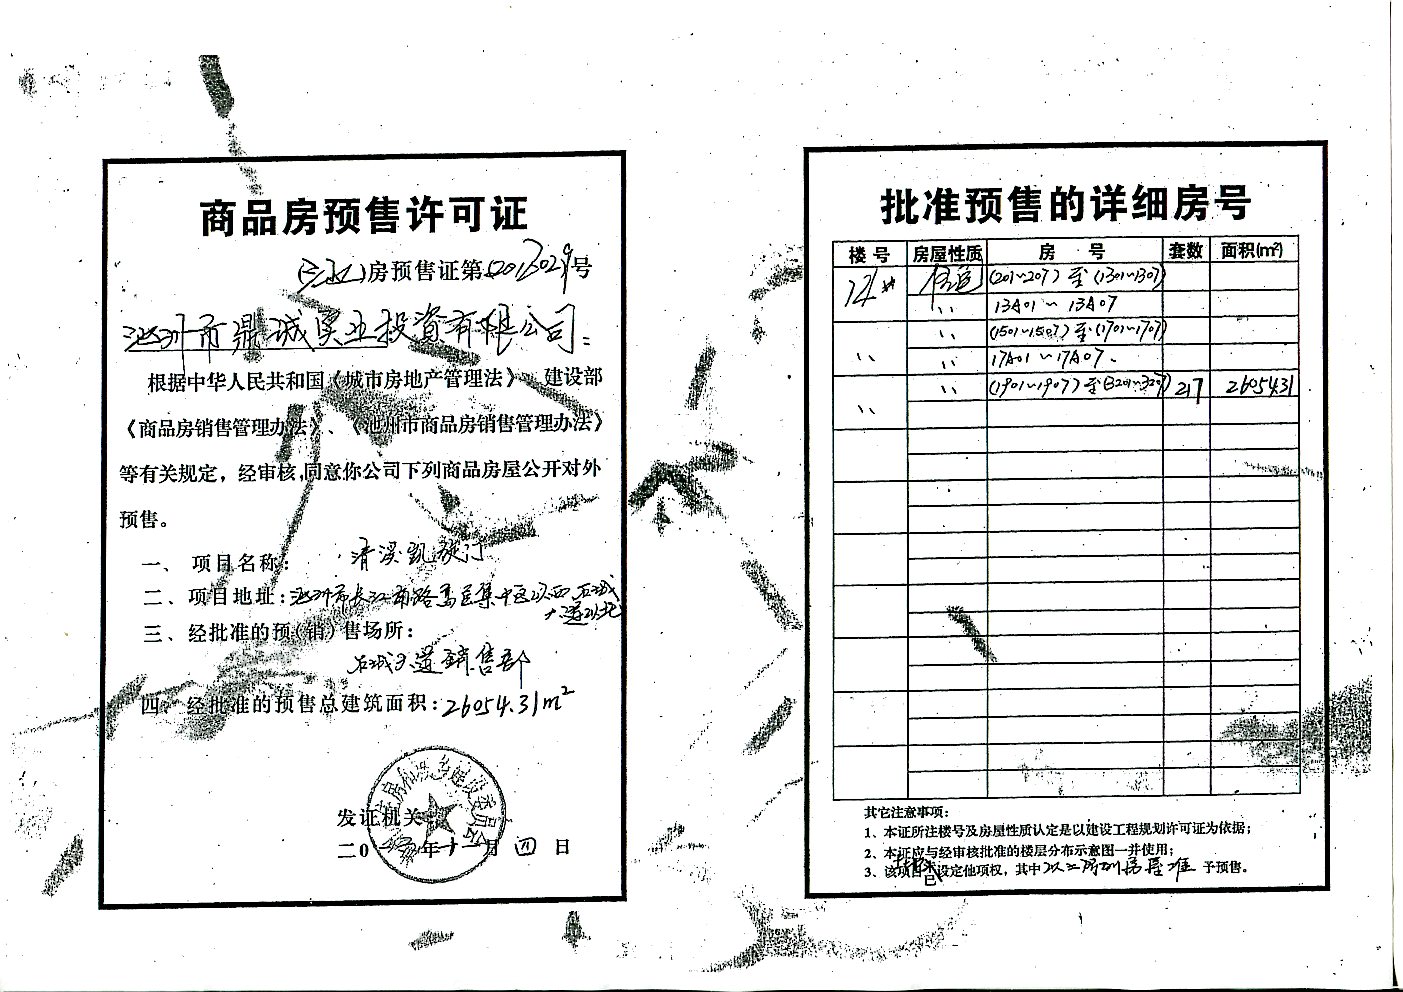 商品房预售许可证
(池)房预售证第2013029号
池州市鼎诚实业投资有限公司:
根据中华人民共和国《城市房地产管理法》、建设部
《商品房销售管理办法》、《池州市商品房销售管理办法》
等有关规定，经审核,同意你公司下列商品房屋公开对外
预售。
一、 项目名称: 清溪凯旋门
二、项目地址:池州市长江南路高层集中区以西石城
大道以北
三、经批准的预(销)售场所:
石城大道销售部
四、经批准的预售总建筑面积:26054.31m²
发证机关
住房和城乡建设委员会
二0 年十一月四日
批准预售的详细房号
楼号 房屋性质 房 号 套数 面积(m²)
12# 住宅 (201~207)至(1301~1307)
〃 13A01~13A07
〃 (1501~1507)至(1701~1707)
〃 〃 17A01~17A07.
〃 (1901~1907)至(3201~3207) 217 26054.31
〃
其它注意事项:
1、本证所注楼号及房屋性质认定是以建设工程规划许可证为依据;
2、本证应与经审核批准的楼层分布示意图一并使用;
3、该项目 已设定他项权，其中 予预售。